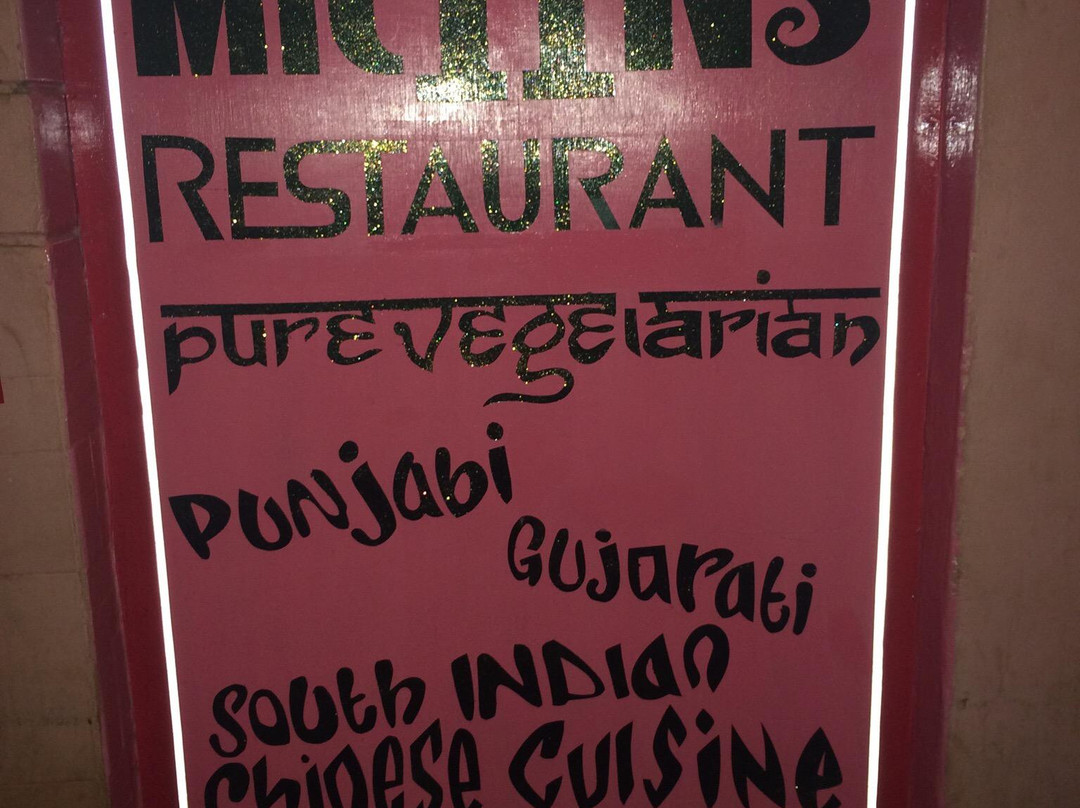 RESTAURANT
pure vegetarian
Punjabi
Gujarati
South INDian
Chinese Cuisine